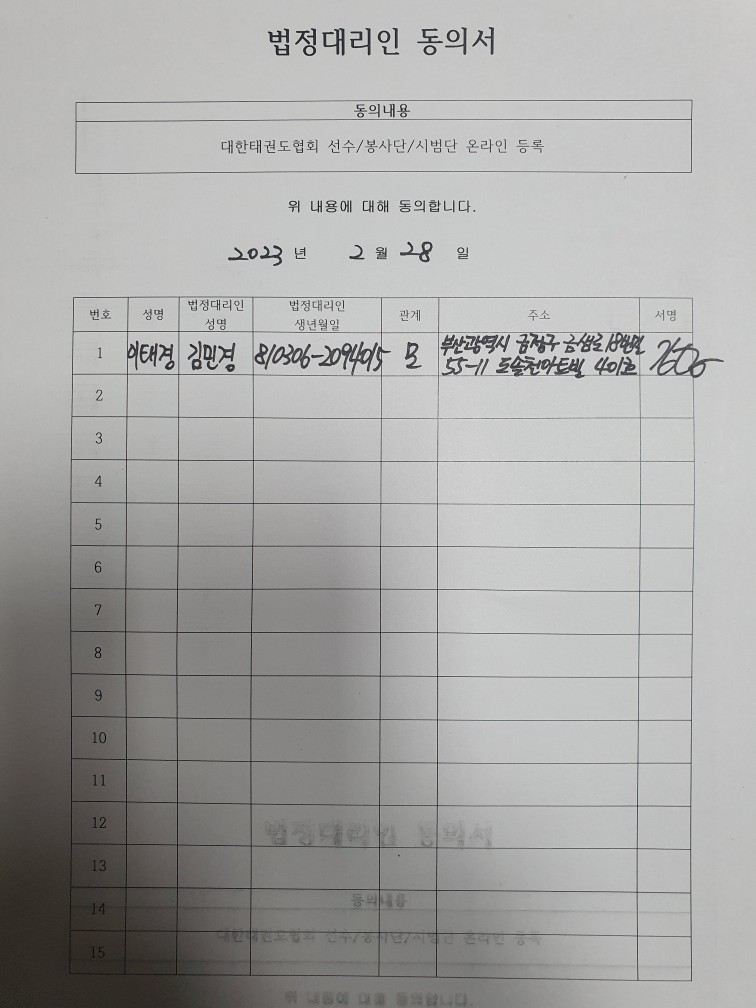 법정대리인 동의서
동의내용
대한태권도협회 선수/봉사단/시범단 온라인 등록
위 내용에 대해 동의합니다.
2023 년 2 월 28 일
번호 성명 법정대리인 성명 법정대리인 생년월일 관계 주소 서명
1 이태경 김민경 810306-2094015 모 부산광역시 금정구 금샘로
55-11 도솔천아트빌 401호
2
3
4
5
6
7
8
9
10
11
12
13
14
15
법정대리인 동의서
동의내용
대한태권도협회 선수/봉사단/시범단 온라인 등록
위 내용에 대해 동의합니다.